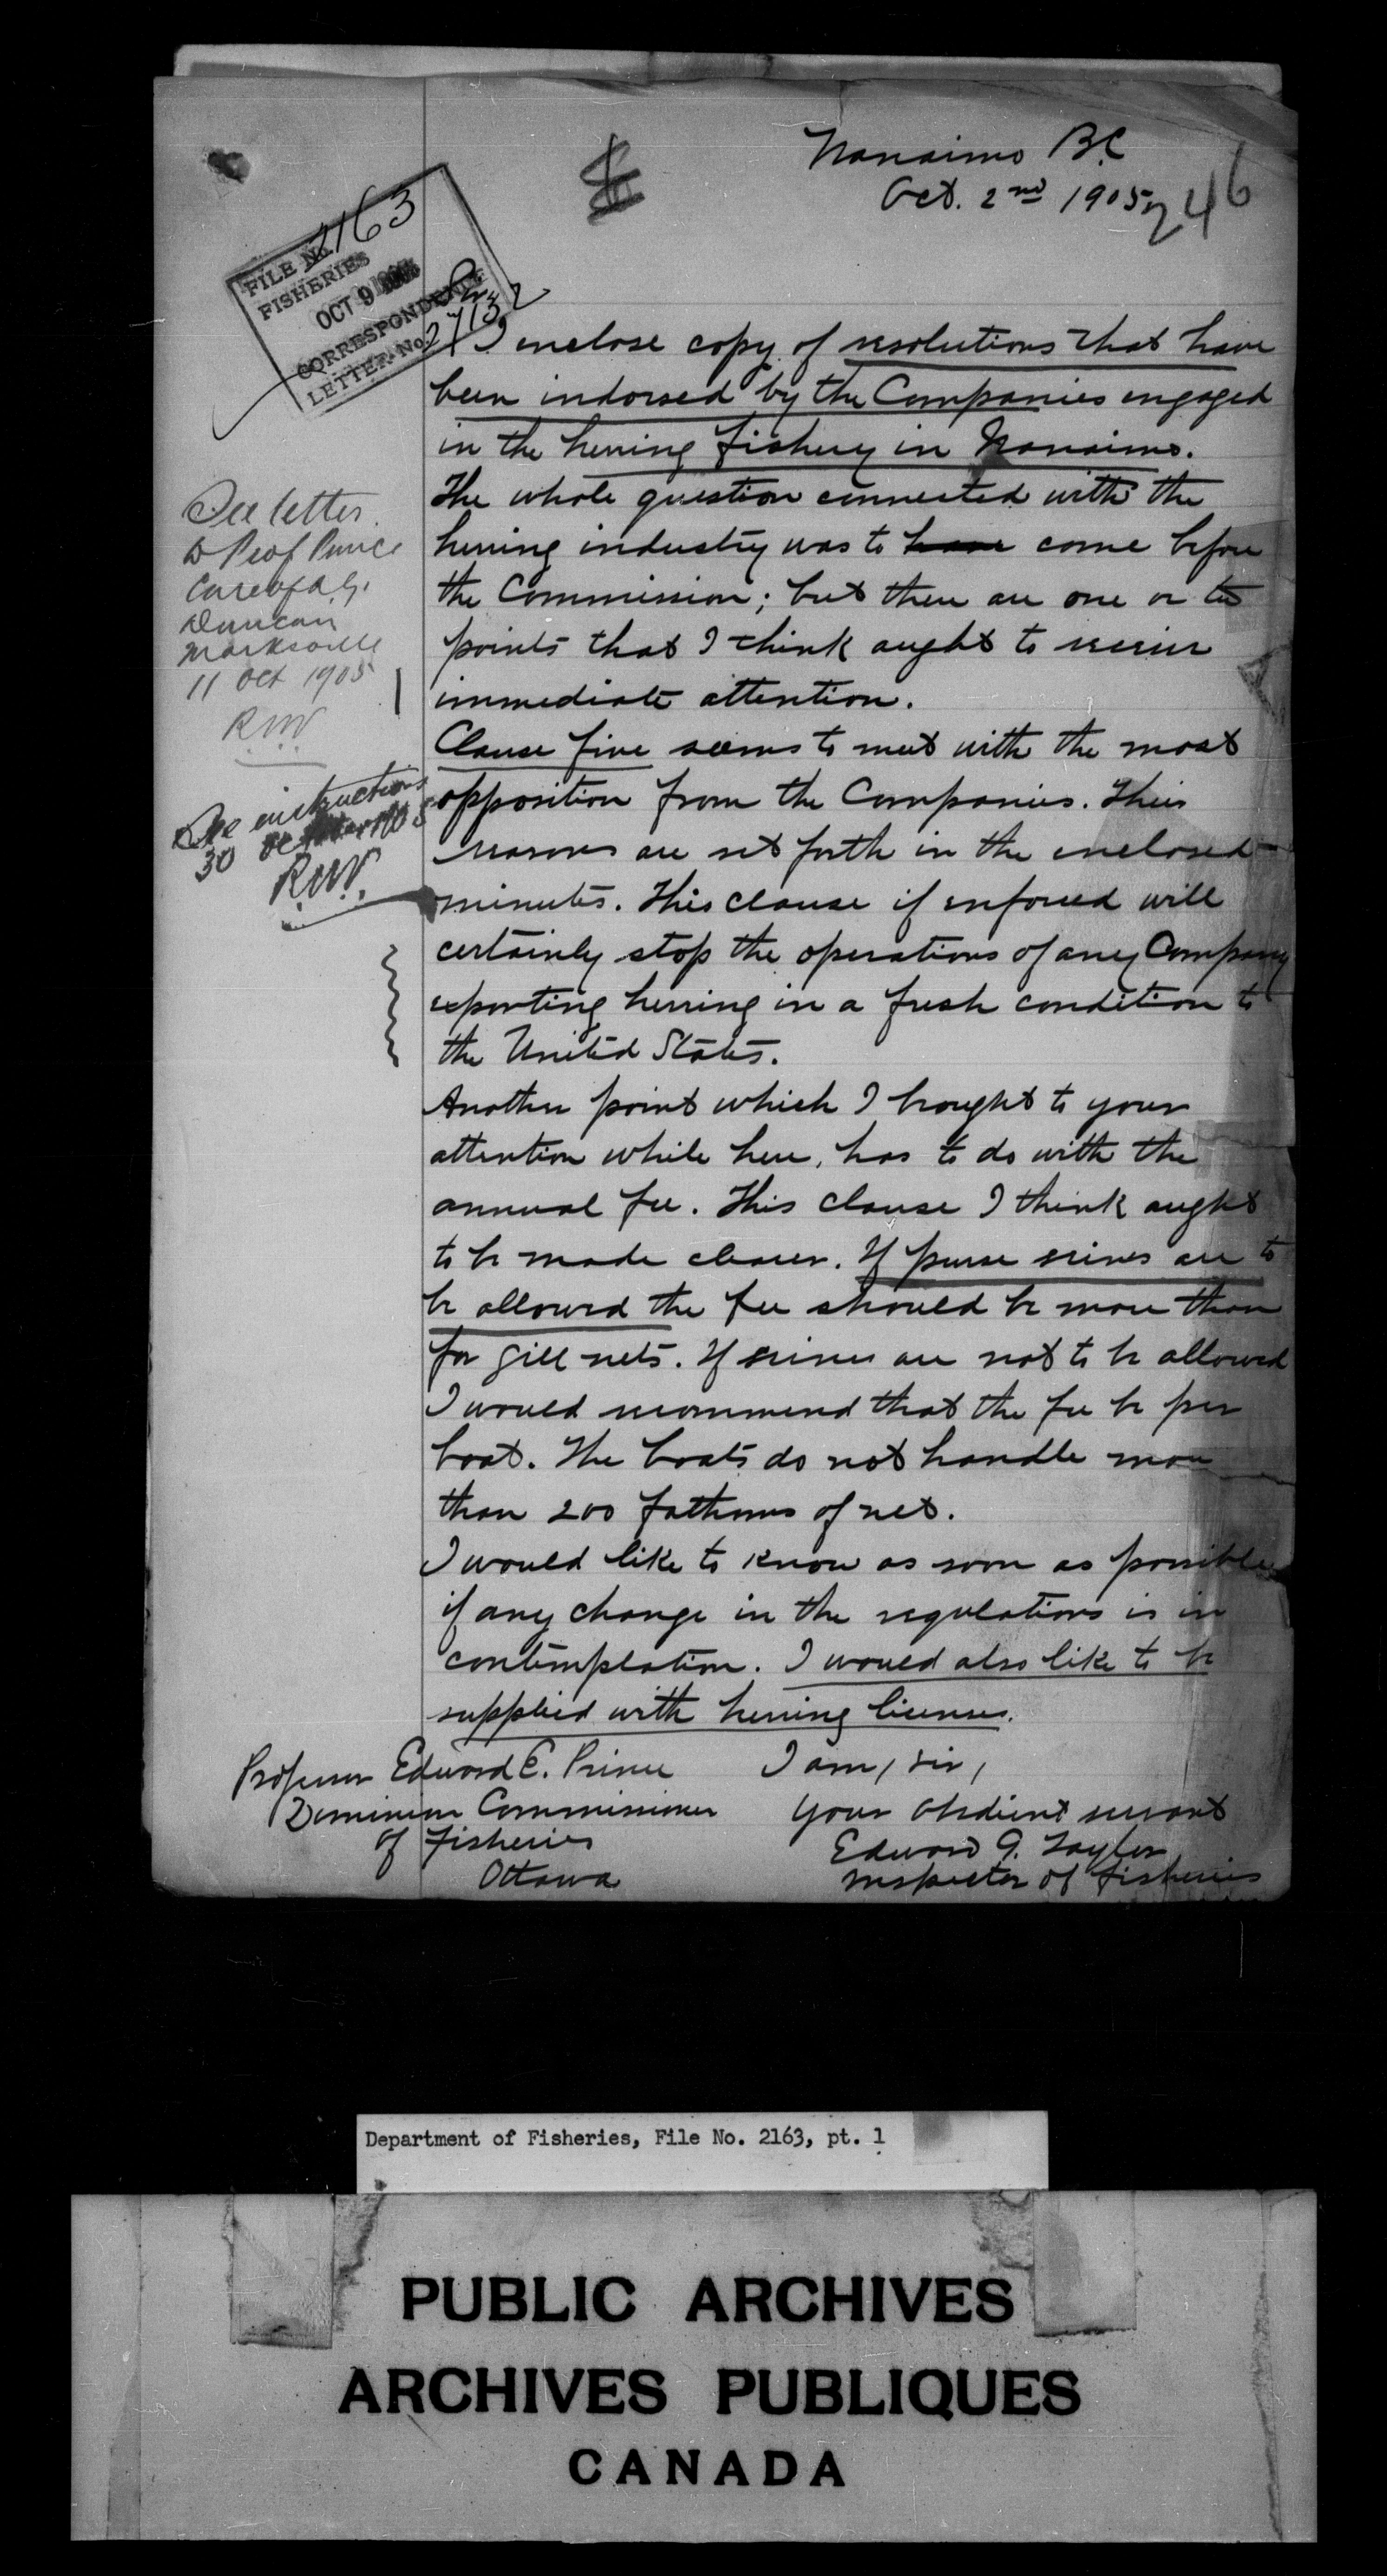 Nanaimo B.C.
Oct. 2nd 1905
246
FILE No. 2163
FISHERIES
OCT 9 1905
CORRESPONDENCE
LETTER No.
Sir,
I enclose copy of resolutions that have
been indorsed by the Companies engaged
in the herring fishery in Nanaimo.
The whole question connected with the
herring industry was to have come before
the Commission; but there are one or two
points that I think aught to receive
immediate attention.
Clause five seems to meet with the most
opposition from the Companies. Their
reasons are set forth in the enclosed
minutes. This clause if enforced will
certainly stop the operations of any Company
exporting herring in a fresh condition to
the United States.
Another point which I brought to your
attention while here, has to do with the
annual fee. This clause I think aught
to be made clearer. If purse seines are to
be allowed the fee should be more than
for gill nets. If seines are not to be allowed
I would recommend that the fee be per
boat. The boats do not handle more
than 200 fathoms of net.
I would like to know as soon as possible
if any change in the regulations is in
contemplation. I would also like to be
supplied with herring licenses.
I am, sir,
your obedient servant
Edward G. Taylor
Inspector of Fisheries
Professor Edward E. Prince
Dominion Commissioner
of Fisheries
Ottawa
See letter
to Prof Prince
Duncan
Marksville
11 Oct 1905
RNV
See instructions
30 1905
RNV.
Department of Fisheries, File No. 2163, pt. 1
PUBLIC ARCHIVES
ARCHIVES PUBLIQUES
CANADA